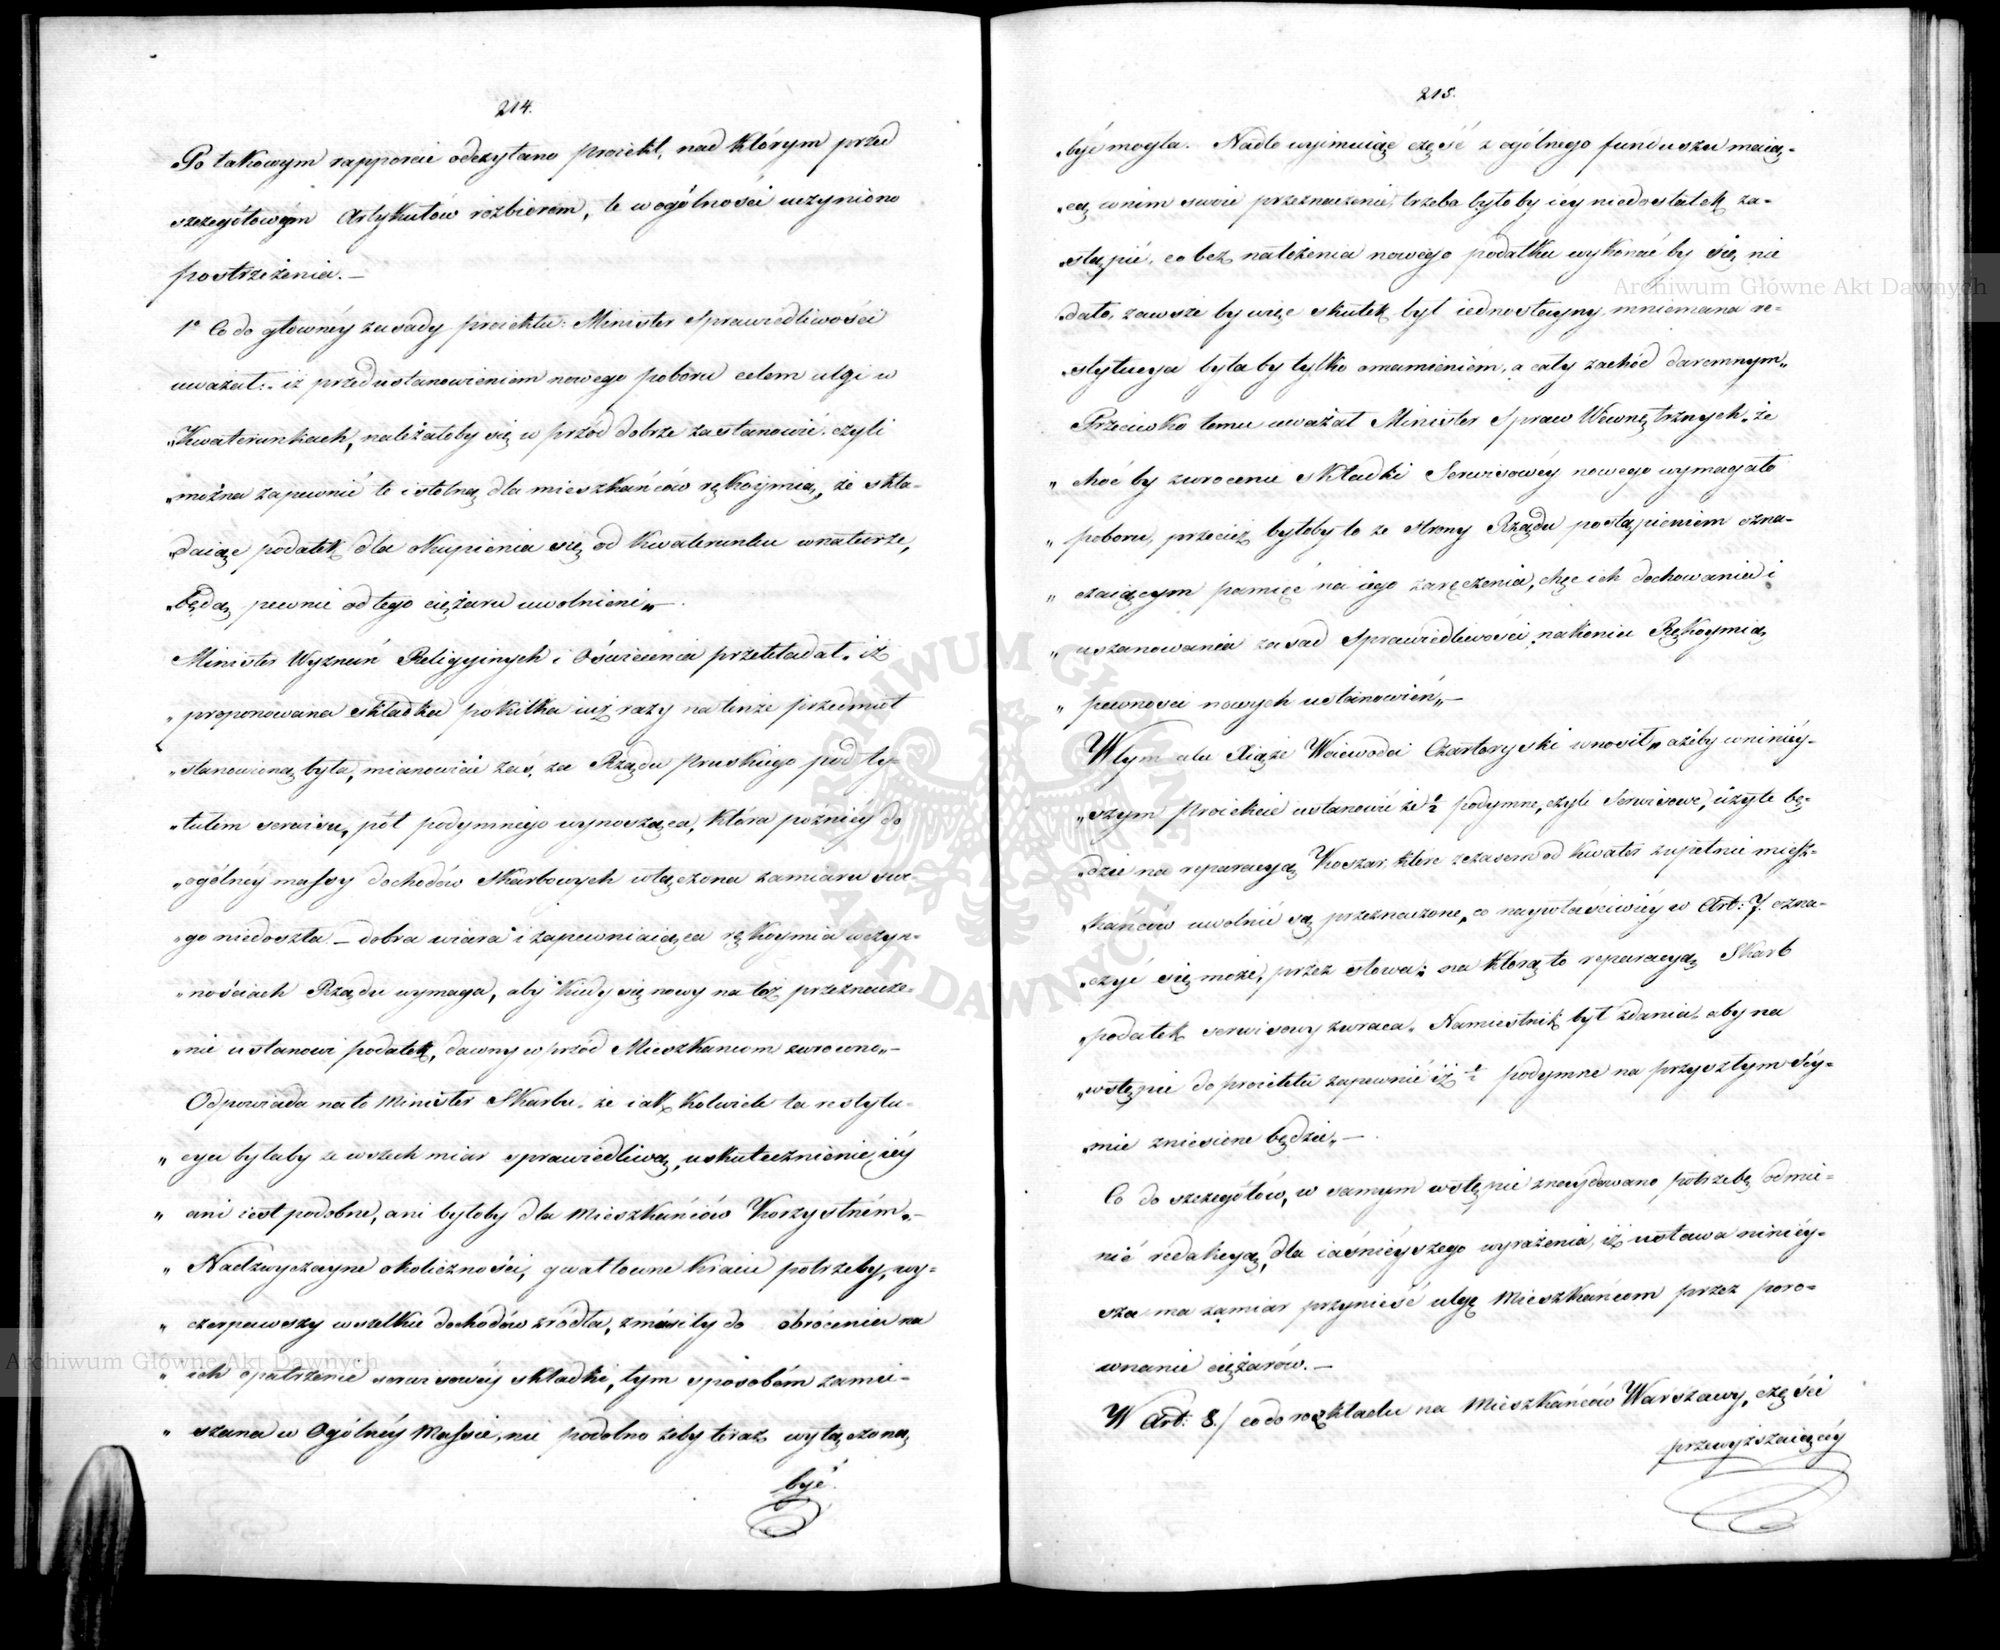 214.
Po takowym rapporcie odczytano Proiekt, nad którym przed
szczegółowym Artykułów rozbiorem, te w ogólności uczyniono
postrzeżenia. —
1° Co do głównéy zasady proiektu: Minister Sprawiedliwości
uważał: „iż przed ustanowieniem nowego poboru celem ulgi w
„Kwaterunkach, należałoby się w przód dobrze zastanowić. czyli
„można zapewnić tę istotną dla mieszkańców rękoymią, że skła-
„daiąc podatek dla okupienia się od Kwaterunku w naturze,
„będą pewnie od tego ciężaru uwolnieni„ —
Minister Wyznań Religiynych i Oświecenia przekładał „iż
„proponowana składka po kilka iuż razy na tenże przedmiot
„stanowiona była, mianowicie zaś, za Rządu Pruskiego pod ty-
„tułem serwisu, pół podymnego wynosząca, która późniéy do
„ogólnéy massy dochodów Skarbowych włączona zamiaru swe-
„go niedoszła — dobra wiara i zapewniaiąca rękoymia w czyn-
„nościach Rządu wymaga, aby kiedy się nowy na toż przeznacze-
„nie ustanowi podatek, dawny w przód Mieszkańcom zwrócono„ —
Odpowiada na to Minister Skarbu. że iakkolwiek ta restytu-
„ cya byłaby ze wszech miar sprawiedliwą, uskutecznienie iéy
„ ani iest podobne, ani byłoby dla Mieszkańców Korzystném. —
„ Nadzwyczayne okoliczności, gwałtowne Kraiu potrzeby, wy-
„ czerpawszy wszelkie dochodów źródła, zmusiły do obrócenia na
„ ich opatrzenie serwisowéy składki, tym sposobém zamie-
„ szana w Ogólnéy Massie, nie podobno żeby teraz wyłączoną
być.
215.
„być mogła. Nadto wyimuiąc część z ogólnego funduszu maią-
„cą w nim swoie przeznaczenie, trzeba byłoby iéy niedostatek za-
„stąpić, co bez nałożenia nowego podatku wykonać by się nie
„dało, zawsze by więc skutek był iednostayny, mniemana re-
„stytucya byłaby tylko omamieniém, a cały zachód daremnym„
Przeciwko temu uważał Minister Spraw Wewnętrznych, „że
„ choćby zwrócenie składki Serwisowéy nowego wymagało
„ poboru, przecież byłoby to ze strony Rządu postąpieniem ozna-
„ czaiącym pamięć na iego zaręczenia, chęć ich dochowania i
„ uszanowania zasad Sprawiedliwości, nakoniec Rękoymią
„ pewności nowych ustanowień„ —
W tym celu Xiąże Woiewoda Czartoryski wnosił „ ażeby w niniéy-
„szym Proiekcie ustanowić że ½ podymne, czyli Serwisowe, użyte bę-
„dzie na reparacyą Koszar które z czasem od kwater zupełnie miesz-
„kańców uwolnić są przeznaczone, co naywłaściwiéy w Art: 7. ozna-
„czyć się może, przez słowa: na którą to reparacyą Skarb
„podatek serwisowy zwraca. Namiestnik był zdania, aby na
„wstępie do proiektu zapewnić iż ½ podymne na przyszłym Séy-
„mie zniesione będzie„ —
Co do szczegółów, w samym wstępie znaydowano potrzebę odmie-
nić redakcyą, dla iaśniéyszego wyrażenia, iż ustawa niniéy-
sza ma zamiar przynieść ulgę Mieszkańcom przez poró-
wnanie ciężarów. —
W Art: 8./ co do rozkładu na Mieszkańców Warszawy, części
przewyższaiącéy